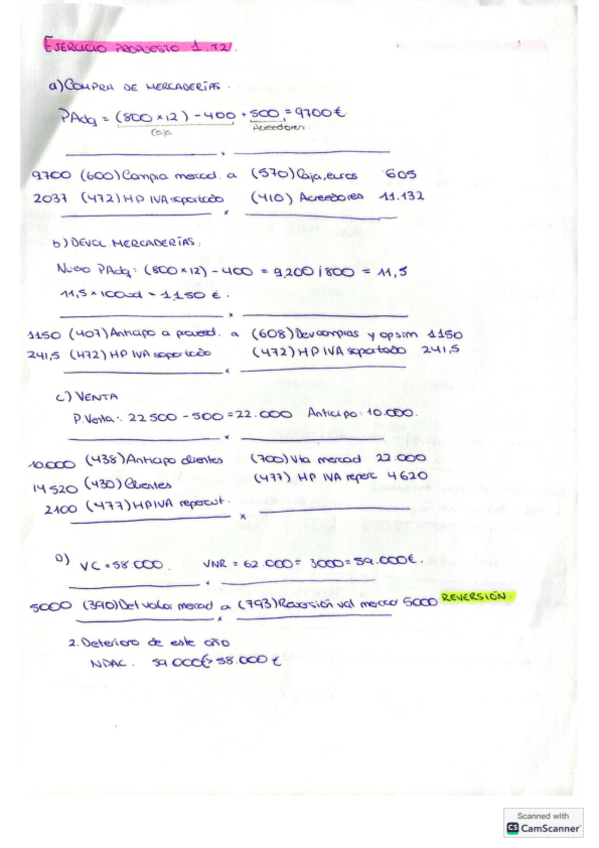 EJERCICIO PROPUESTO 1. T2.
a) COMPRA DE MERCADERÍAS.
PAdq = (800 x 12) - 400 + 500 = 9700 €
Caja Acreedores.
9700 (600) Compra mercad. a (570) Caja, euros 605
2037 (472) HP IVA soportado (410) Acreedores 11.132
b) DEVOL. MERCADERÍAS.
Nuevo PAdq: (800 x 12) - 400 = 9,200 / 800 = 11,5
11,5 x 100ud = 1150 €.
1150 (407) Anticipo a proveed. a (608) Dev compras y op sim 1150
241,5 (472) HP IVA soportado (472) HP IVA soportado 241,5
c) VENTA
P. Venta: 22 500 - 500 = 22.000 Anticipo: 10.000.
10.000 (438) Anticipo clientes (700) Vta mercad 22.000
14 520 (430) Clientes (477) HP IVA reperc 4620
2100 (477) HP IVA repercut.
VC = 58 000. VNR = 62.000 = 3000 = 59.000 €.
5000 (390) Det valor mercad a (793) Reversión val mercad 5000 REVERSIÓN
2. Deterioro de este año
NDAC. 59.000 > 58.000 €
Scanned with
CS CamScanner